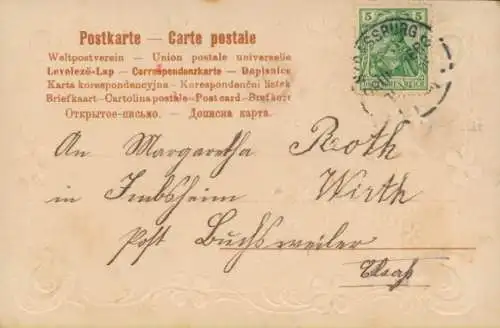 Postkarte — Carte postale
Weltpostverein — Union postale universelle
Levelező-Lap — Correspondenzkarte — Dopisnice
Karta korespondencyjna — Korespondenční lístek
Briefkaart — Cartolina postale — Post card — Brefkort
Открытое-письмо. — Дописна карта.
5 5
STRASSBURG
An Margaretha Roth
in Imbsheim Wirth
Post Buchsweiler
Elsass